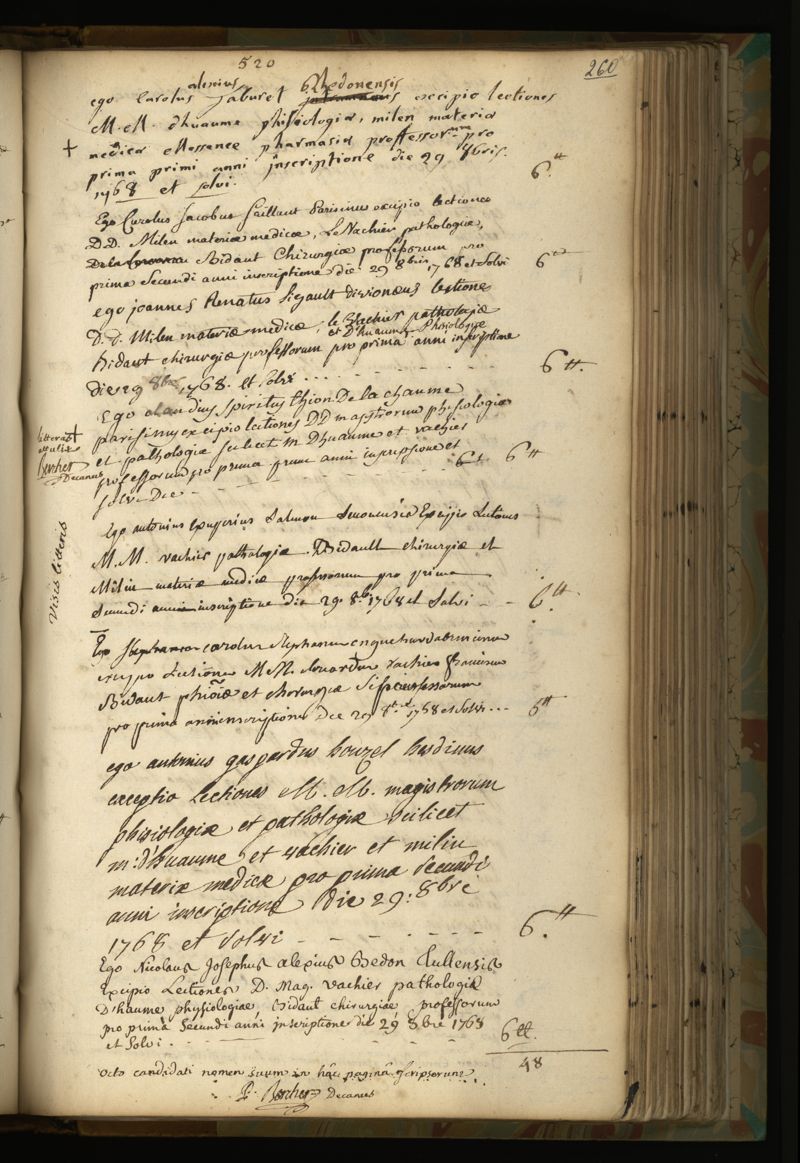 520
260
ego Carolus alexius Jaburet Rhedonensis excipio lectiones
M. M. dhuaume phisiologiæ, milen materiæ
+ medicæ Messence pharmasiæ professorum pro
prima primi anni inscriptione die 29 8bris.
1768 et solvi. 6 tt
Ego Carolus Jacobus Saillant Parisinus excipio lectiones
D.D. Milen materiæ medicæ, LeVachier pathologiæ,
Bidaut Chirurgiæ professorum pro
prima Secundi anni inscriptione die 29 8bris 1768 et Solvi 6 tt
ego joannes Renatus Sigault divionæus lectiones
D.D. Milen materiæ medicæ, le Vachier pathologiæ
et D'huaume Phisiologiæ
Bidaut chirurgiæ professorum pro prima anni inscriptione
die 29 8bris 1768. et Solvi 6 tt.
Ego claudius Spiritus thion De la chaume
parisinus excipio lectiones DD magistrorum phisiologiæ
et pathologiæ scilicet m Dhuaume et vachier
professorum pro prima primi anni inscriptione et
solvi Die 6 tt 6 tt
litteras
Bercher
Decanus
Visis litteris
Ego antonius Exuperius Salmon Senonensis Excipio Lectiones
M. M. vachier pathologiæ. Bidault chirurgiæ et
Milin materiæ medicæ professorum pro prima
Secundi anni inscriptione die 29. 8bris 1768 et Solvi 6 tt.
Ego Stephanus
excipio Lectiones M M. vachier
Bidaut et chirurgiæ professorum
pro prima anni inscriptione die 29 8bris 1768 et Solvi 6 tt
ego antonius gaspardus houzel hesdinus
exceptio Lectiones M. M. magistrorum
phisiologiæ et pathologiæ scilicet
m: d'huaume et vachier et milin
materiæ medicæ pro prima secundi
anni inscriptione Die 29. 8bre
1768 et Solvi 6. tt
Ego Nicolaus Josephus alexius Bedon Tullensis
Excipio Lectiones D. Mag. vachier pathologiæ
D'haume physiologiæ, Bidaut chirurgiæ professorum
pro prima Secundi anni inscriptione die 29 8bre 1768
et Solvi. 6 tt.
48
octo candidati nomen suum in hâc paginâ scripserunt
P. Bercher Decanus